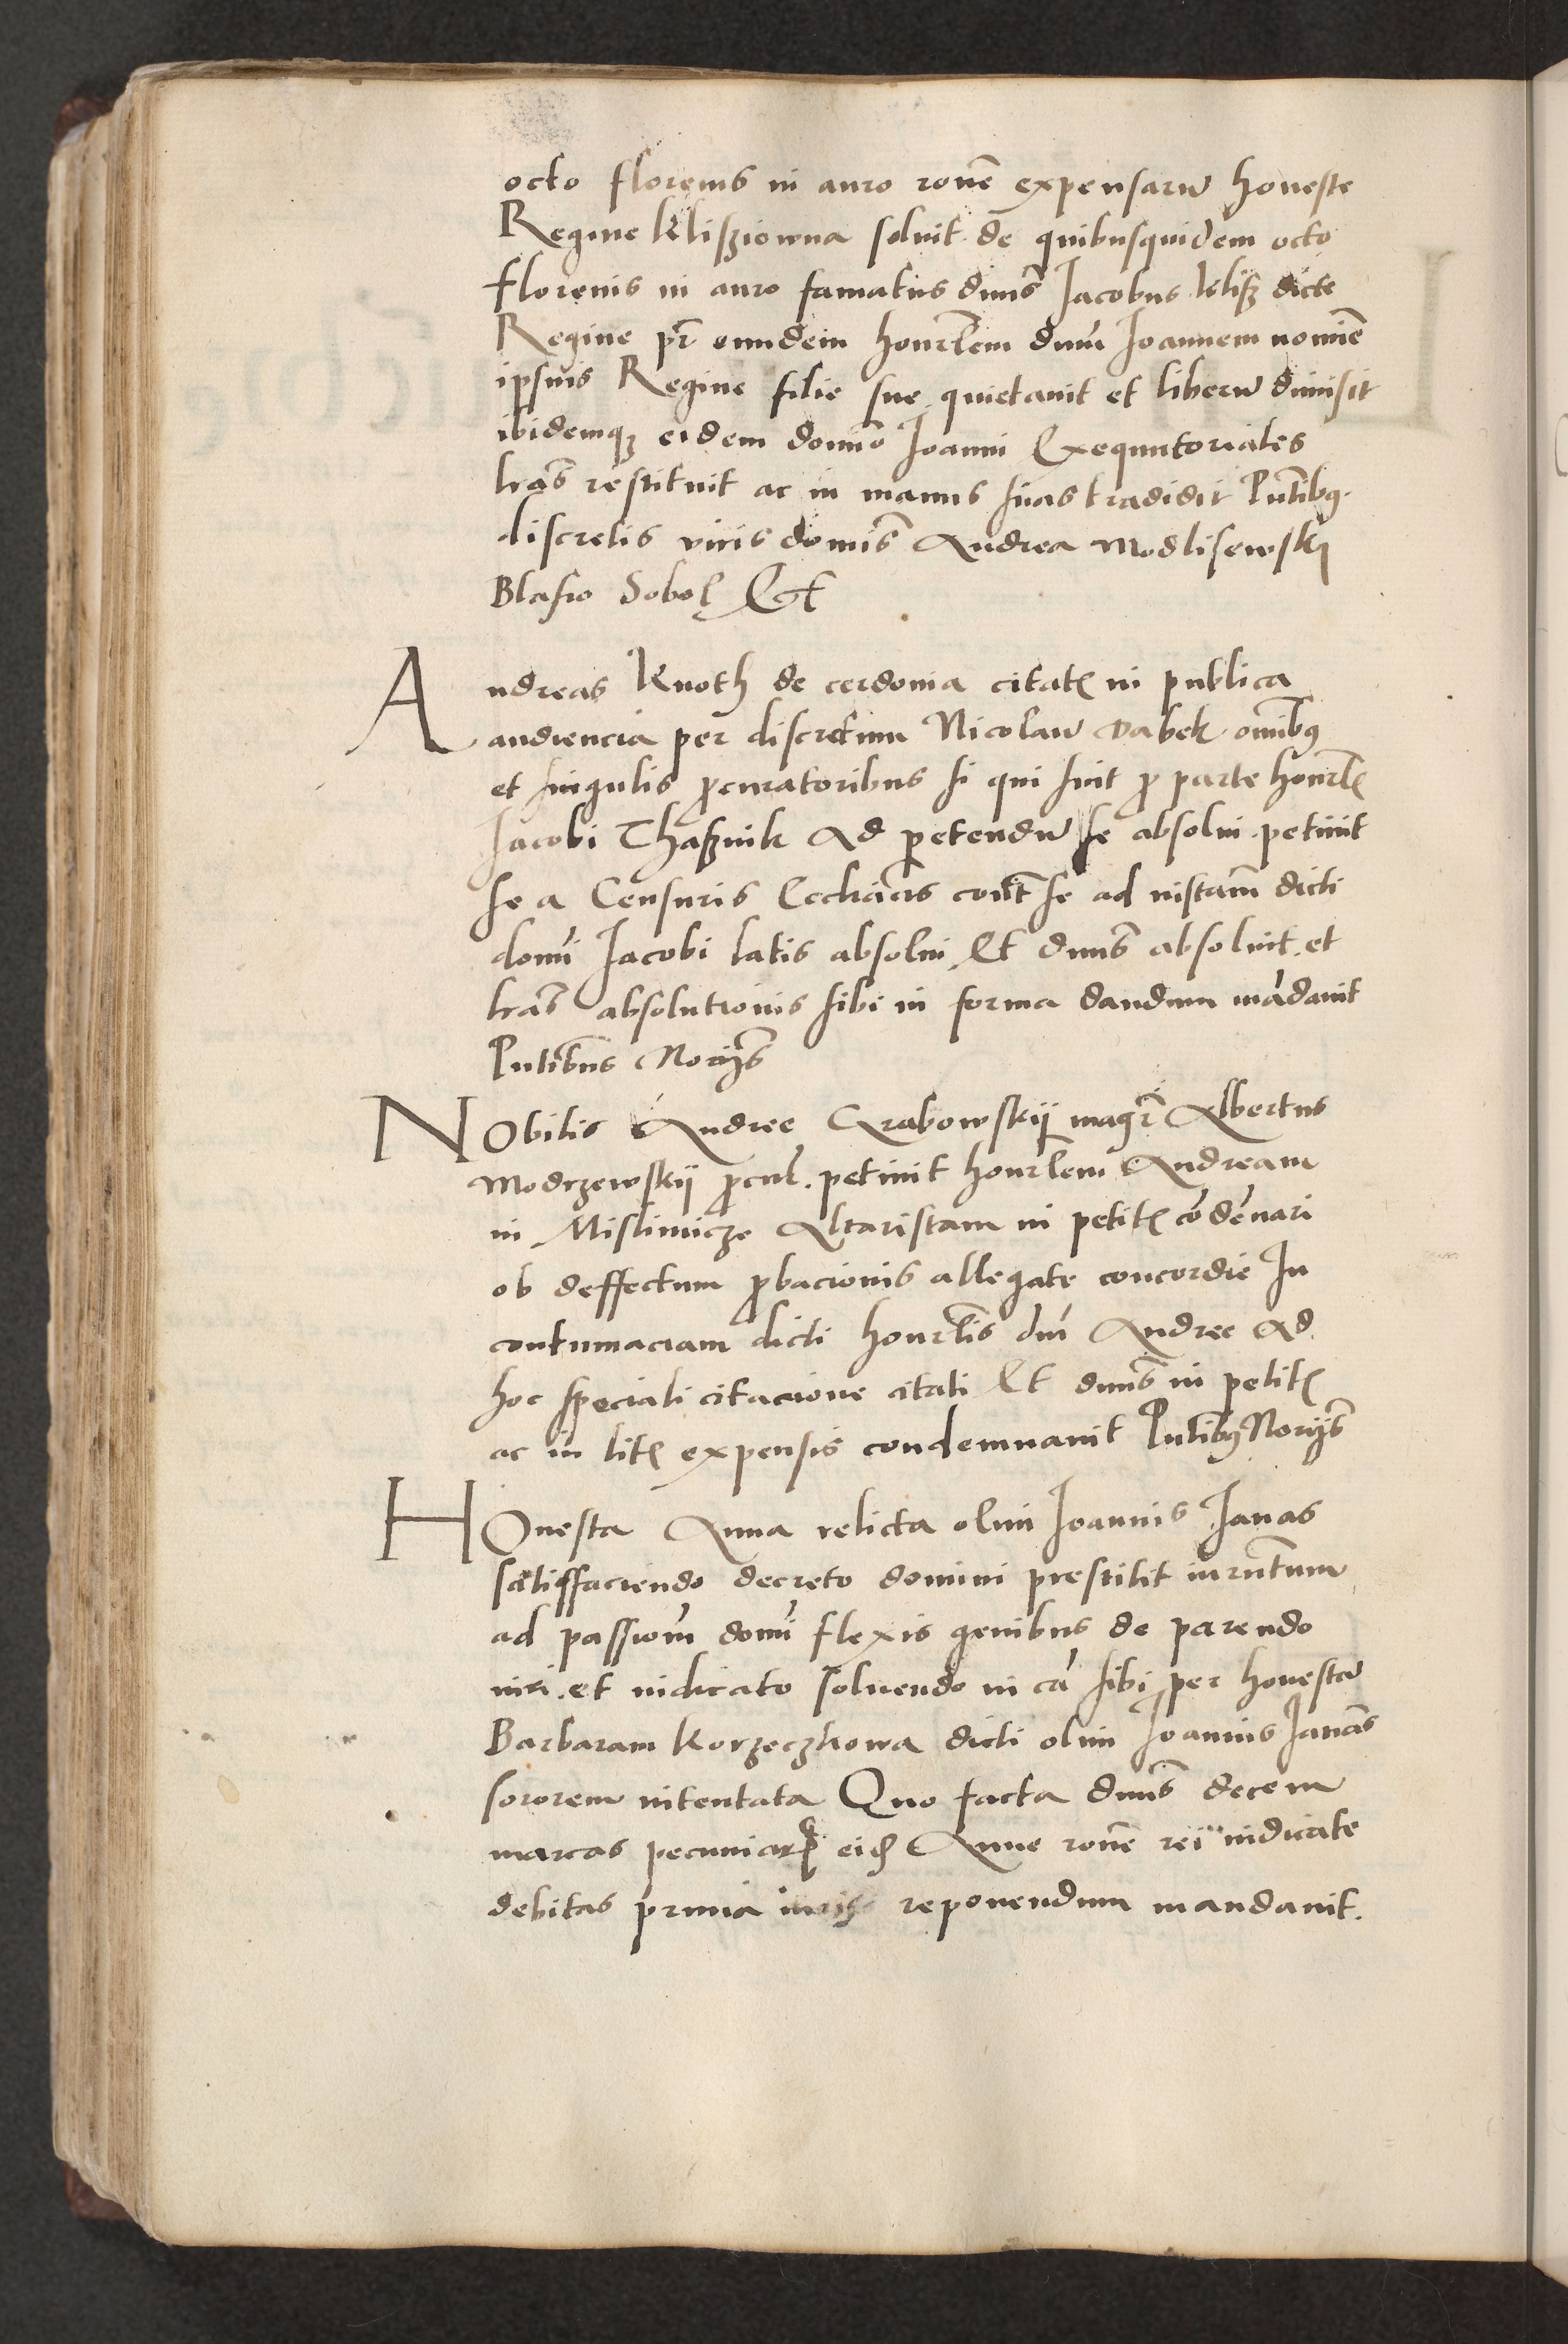 octo florenis in auro ronē expensarū honeste
Regine Klisziowna soluit de quibusquidem octo
florenis in auro famatus dnus Jacobus Klisz dicte
Regine pr̄ eundem honrlem dnum Joannem nomine
ipsius Regine filie sue quietauit et liberū dimisit
ibidemqz eidem domno Joanni Exequutoriales
lras restituit ac in manus suas tradidit Pntibq
discretis viris domis Andrea Modlisewski
Blasio Sobol Et
Andreas Knoth de cerdonia citatꝫ in publica
audiencia per discretum Nicolaū Dabek omibq
et singulis ꝓcuratoribus si qui sint ꝓ parte honrlꝫ
Jacobi Thasznik Ad petendū se absolui petiuit
se a Censuris Eccliacis cont se ad instam dicti
domi Jacobi latis absolui Et dnus absoluit et
lras absolutionis sibi in forma dandum mādauit
Pntibus Norijs
NObilis Andree Grabowskij magr Albertus
Modrzewskij ꝓcur. petiuit honrlem Andream
in Mislimicze Altaristam in petitꝫ cōdēnari
ob deffectum ꝓbacionis allegate concordie In
contumaciam dicti honrlis dni Andree Ad
hoc speciali citacione citati Et dnus in petitꝫ
ac in litꝫ expensis condemnauit Pntibq Norijs
HOnesta Anna relicta olim Joannis Janas
satisfaciendo decreto domini prestitit iurntum
ad passiom domi flexis genibus de parendo
iuri et iudicato soluendo in cā sibi per honestā
Barbaram Korzeczkowa dicti olim Joannis Janas
sororem intentata Quo facta dnus decem
marcas pecuniarꝝ eidꝫ Anne ronē rei iudicate
debitas reponendum mandauit.